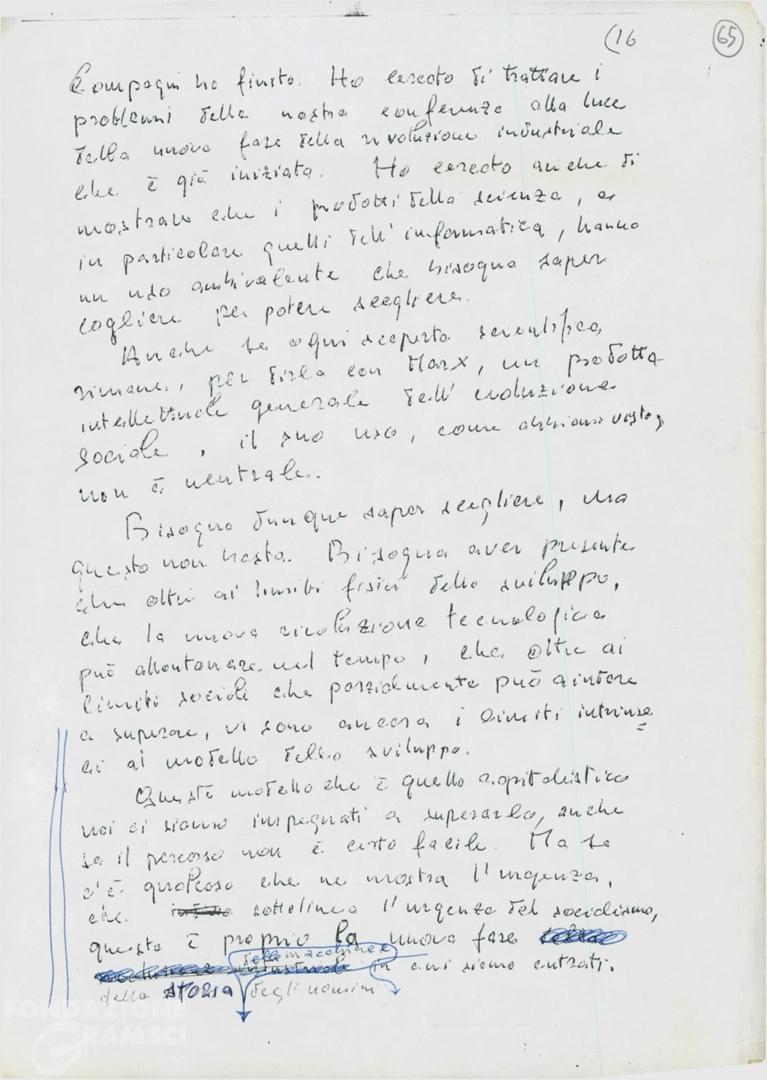 (16
65
Compagni ho finito. Ho cercato di trattare i
problemi della nostra conferenza alla luce
della nuova fase della rivoluzione industriale
che è già iniziata. Ho cercato anche di
mostrare che i prodotti della scienza, e
in particolare quelli dell'informatica, hanno
un uso ambivalente che bisogna saper
cogliere per potere scegliere.
Anche se ogni scoperta scientifica
rimane, per dirla con Marx, un prodotto
intellettuale generale dell'evoluzione
sociale, il suo uso, come abbiamo visto,
non è neutrale.
Bisogna dunque saper scegliere, ma
questo non basta. Bisogna aver presente
che oltre ai limiti fisici dello sviluppo,
che la nuova rivoluzione tecnologica
può allontanare nel tempo, che oltre ai
limiti sociali che parzialmente può aiutare
a superare, vi sono ancora i limiti intrinse
ci al modello dello sviluppo.
Questo modello che è quello capitalistico
noi ci siamo impegnati a superarlo, anche
se il percorso non è certo facile. Ma se
c'è qualcosa che ne mostra l'urgenza,
che sottolinea l'urgenza del socialismo,
questa è proprio la nuova fase
delle macchine e
in cui siamo entrati.
della STORIA degli uomini
FONDAZIONE
GRAMSCI